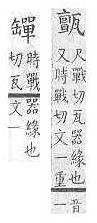 尺戰切瓦器緣也音
又時戰切文一重一
時戰器緣也
切瓦文一